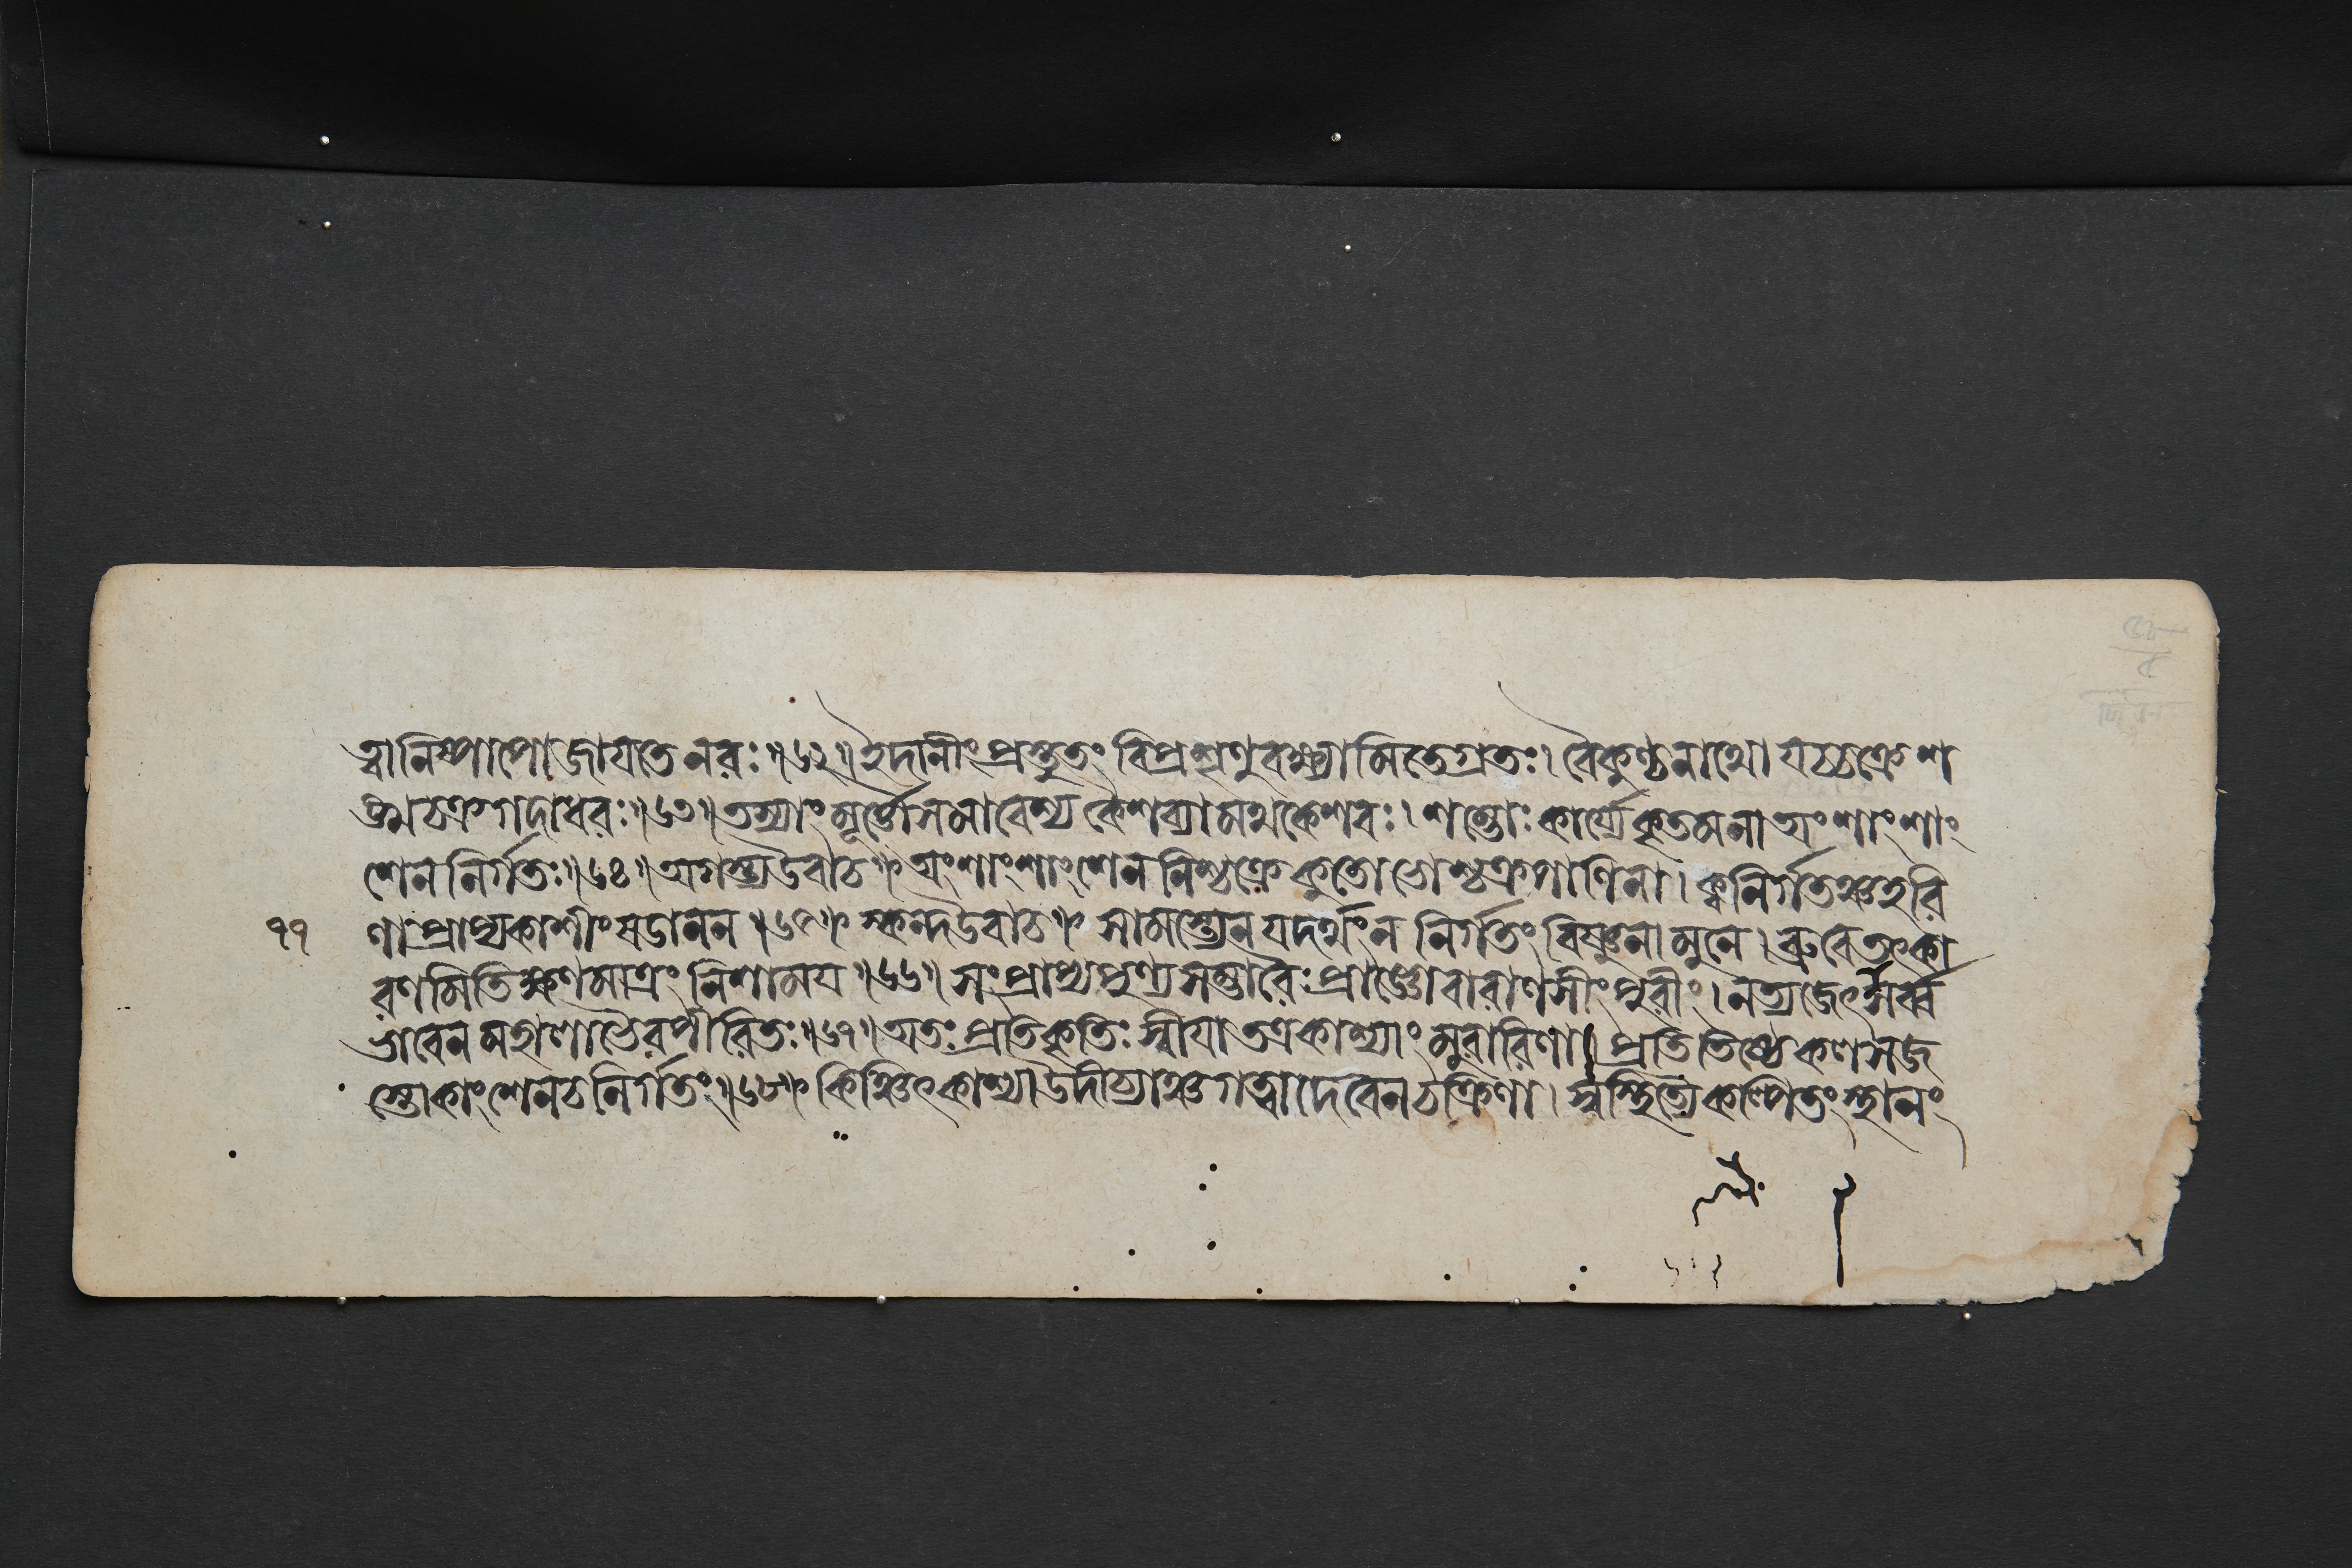 ত্বা নিষ্পাপো জায়তে নরঃ॥৬২॥ ইদানীং প্রস্তুতং বিপ্র শৃণু বক্ষ্যামি তেগ্রতঃ। বৈকুণ্ঠনাথো যচ্চক্রে শ
ঙ্খচক্রগদাধরঃ॥৬৩॥ তস্যাং মূর্ত্তৌ সমাবেশ্য কৈশব্যামথ কেশবঃ। শম্ভোঃ কার্য্যে কৃতমনা অংশাংশাং
শেন নির্গতঃ॥৬৪॥ অগস্ত্য উবাচ॥ অংশাংশাংশেন নিশ্চক্রে কুতো ভোশ্চক্রপাণিনা। ক্ব নির্গতঞ্চ হরি
৭৭ ণা প্রাপ্য কাশীং ষডানন॥৬৫॥ স্কন্দ উবাচ॥ সামস্ত্যেন যদর্থং ন নির্গতং বিষ্ণুনা মুনে। ব্রুবে তৎ কা
রণমিতি ক্ষণমাত্রং নিশাময়॥৬৬॥ সংপ্রাপ্য পুণ্যসম্ভারৈঃ প্রাজ্ঞো বারাণসীং পুরীং। ন ত্যজেৎ সর্ব্ব
ভাবেন মহালাভৈরপীরিতঃ॥৬৭॥ অতঃ প্রতিকৃতিঃ স্বীয়া তত্র কাশ্যাং মুরারিণা। প্রতিতিষ্ঠে কণসজ
স্তোকাংশেন চ নির্গতং॥৬৮॥ কিঞ্চিৎ কাশ্যা উদীচ্যাঞ্চ গত্বা দেবেন চক্রিণা। স্বস্থিত্যৈ কল্পিতং স্থানং